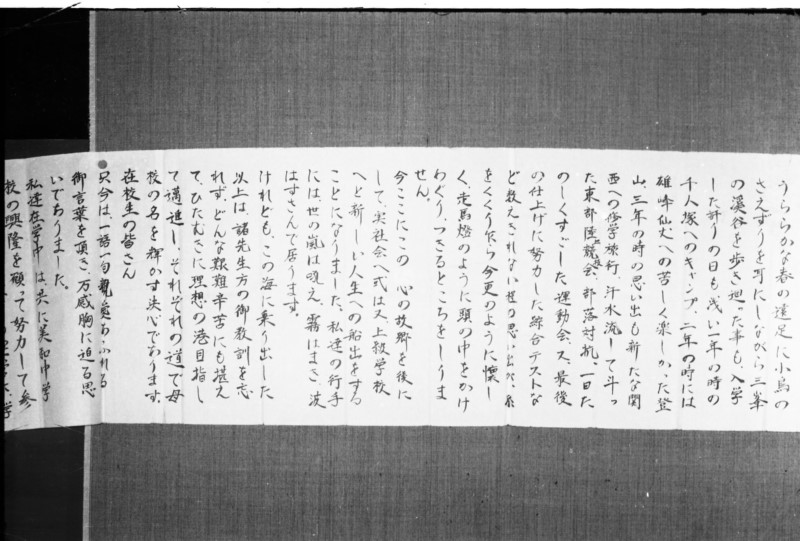 うららかな春の遠足に小鳥の
さえずりを耳にしながら三峯
の溪谷を歩き廻った事も入学
した許りの日も浅い一年の時の
千人塚へのキャンプ、二年の時には
雄峰仙丈への苦しく楽しかった登
山、三年の時の思い出も新たな関
西への修学旅行、汗水流して斗っ
た東部陸競会、部落対抗、一日た
のしくすごした運動会、又、最後
の仕上げに努力した綜合テストな
ど数えきれない世の思い出が、糸
をくくり乍ら今更のように懐し
く、走馬燈のように頭の中をかけ
めぐり、つきるところをしりま
せん。
今ここにこの 心の故郷を後に
して、実社会へ或は又上級学校
へと新しい人生への船出をする
ことになりました。私達の行手
には、世の嵐は吠え 霧はまき、波
はすさんで居ります。
けれども、この海に乗り出した
以上は、諸先生方の御教訓を忘
れず、どんな艱難辛苦にも堪え
て、ひたむきに理想の港目指し
て邁進し、それぞれの道で母
校の名を輝かす決心であります。
在校生の皆さん
只今は、一語一句親愛あふれる
御言葉を頂き、万感胸に迫る思
いであります。
私達在学中は、共に美和中学
校の興隆を願って努力して参